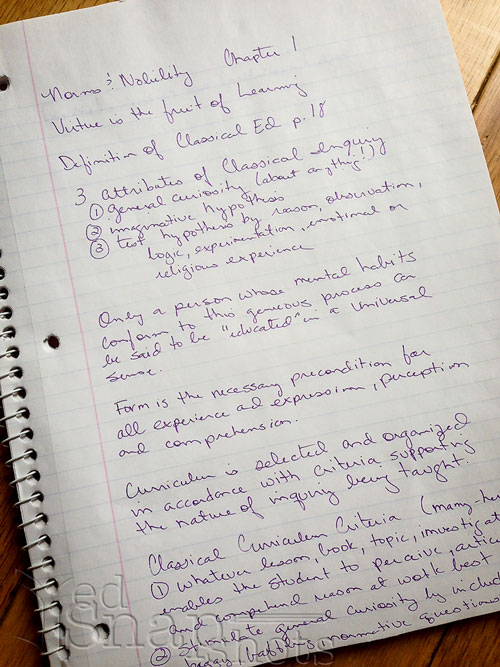 Norms & Nobility Chapter 1
Virtue is the fruit of Learning
Definition of Classical Ed p. 18
3 attributes of Classical Inquiry
① general curiosity (about anything!)
② imaginative hypothesis
③ test hypothesis by reason, observation,
logic, experimentation, emotional or
religious experience
Only a person whose mental habits
conform to this geneous process can
be said to be "educated" in a universal
sense.
Form is the necessary precondition for
all experience and expression, perception
and comprehension.
Curriculum is selected and organized
in accordance with criteria supporting
the nature of inquiry being taught.
Classical Curriculum Criteria (many
① whatever lesson, book, topic, investigat
enables the student to perceive, artic
and comprehend reason at work best
② Stimulate general curiosity by
normative questions
Red
Snap
shots